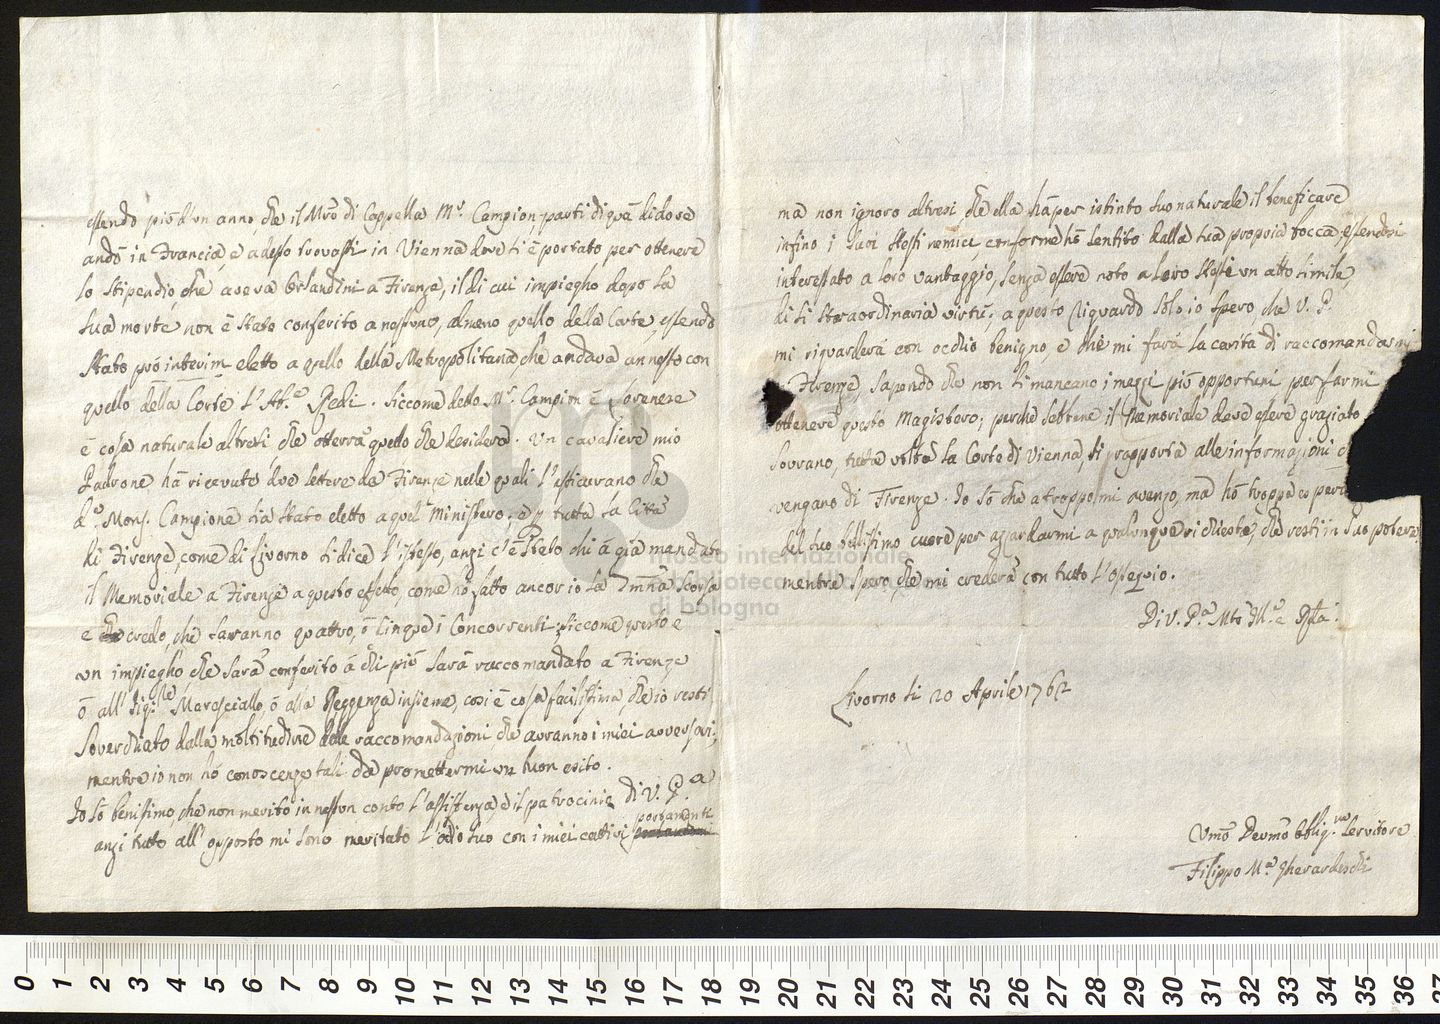 essendo più d'un anno, che il Mro di Cappella Mr. Campion, partì di quà di dove
andò in Francia, e adesso trovassi in Vienna dove si è portato per ottenere
lo stipendio, che aveva Orlandini a Firenze, il di cui impiegho dopo la
sua morte non è stato conferito a nessuno, almeno quello dela Corte, essendo
stato prò interim eletto a quello della Metropolitana, che andava annesso con
quello della Corte l'Ab.e Redi. Siccome detto Mr. Campion è Lorenese
è cosa naturale altresì che otterrà quello che desidera. Un cavaliere mio
Padrone hà ricevuto due lettere da Firenze nelle quali l'assicurano che
Mons. Campione sia stato eletto a quel ministero; e p tutta la Città
di Firenze, come di Livorno si dice l'istesso, anzi c'è stato chi à già mandato
il Memoriale a Firenze a questo effetto, come hò fatto ancor io la 7mna scorsa
e credo, che saranno quattro, ò cinque i Concorrenti. Siccome questo è
un impiegho che sarà conferito à chi più sarà raccomandato a Firenze
ò all' Maresciallo, ò alla Reggenza insieme, così è cosa facilissima, che io resti
Soverchiato dalla moltitudine dele raccomandazioni, che avranno i miei avversari,
mentre io non hò conoscenze tali da promettermi un buon esito.
Io sò benissimo che non merito in nessun conto l'assistenza, e il patrocinio di V. P.a
anzi tutto all' opposto mi sono meritato l'odio suo con i miei cattivi portamenti
ma non ignoro altresì che ella hà per istinto suo naturale il beneficare
infino i suoi stessi nemici, conforme hò sentito dalla sua propria bocca, essendosi
interessato a loro vantaggio, senza essere noto a loro stessi un atto simile,
di sì straordinaria virtù; a questo riguardo solo io spero che V. P.
mi riguarderà con occhio benigno, e che mi farà la carità di raccomandarmi
Firenze, sapendo che non li mancano i mezzi più opportuni per farmi
ottenere questo Magistero; perchè sebbene il Memoriale deve essere graziato
Sovrano, tutta volta la Corte di Vienna, si rapporta alle informazioni
vengano di Firenze. Io sò che a troppo mi avanzo, ma hò troppa esperi
del suo bellissimo cuore per azzardarmi a qualunque richiesta, che resti in suo potere,
mentre spero, che mi crederà con tutto l'ossequio.
Di V. P.a Mto Ill.e e Rda:
Livorno li 20 Aprile 1762
Umo Devmo Obblig.mo Servitore
Filippo M.a Gherardeschi
museo internazionale
e biblioteca della musica
di bologna
0 1 2 3 4 5 6 7 8 9 10 11 12 13 14 15 16 17 18 19 20 21 22 23 24 25 26 27 28 29 30 31 32 33 34 35 36 37